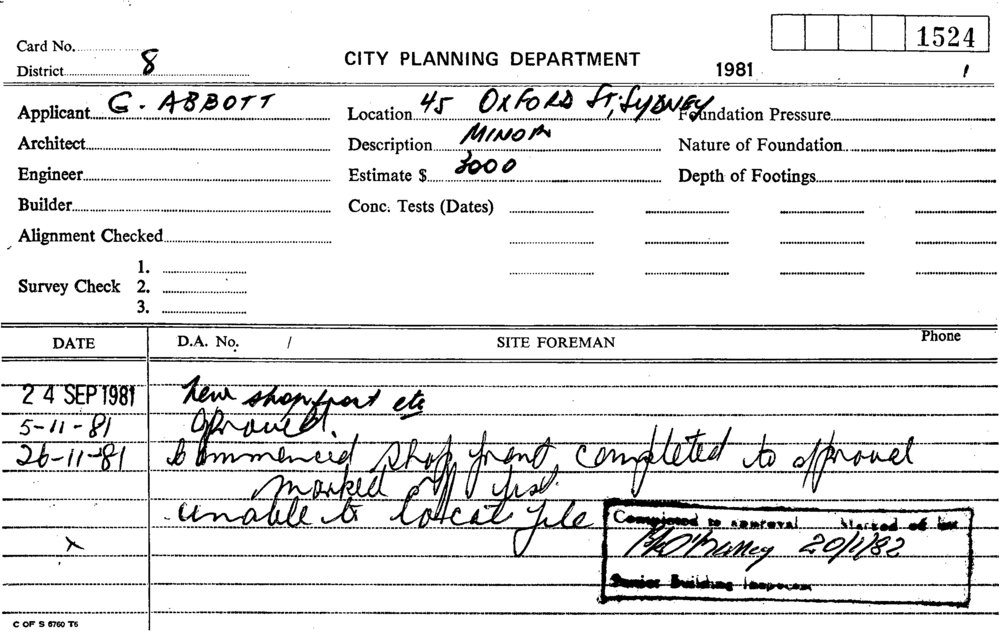 Card No.
1524
District 8
CITY PLANNING DEPARTMENT
1981 1
Applicant G. ABBOTT
Location 45 OXFORD ST, SYDNEY
Foundation Pressure
Architect
Description MINOR
Nature of Foundation
Engineer
Estimate $ 3000
Depth of Footings
Builder
Conc. Tests (Dates)
Alignment Checked
Survey Check
1.
2.
3.
DATE
D.A. No. /
SITE FOREMAN
Phone
24 SEP 1981 new shopfront etc
5-11-81 Aproved.
26-11-81 Commenced shop front completed to approval
marked off list.
unable to locat file
Completed to approval Marked off list
20/1/82
Senior Building Inspector
x
C OF S 6760 T6